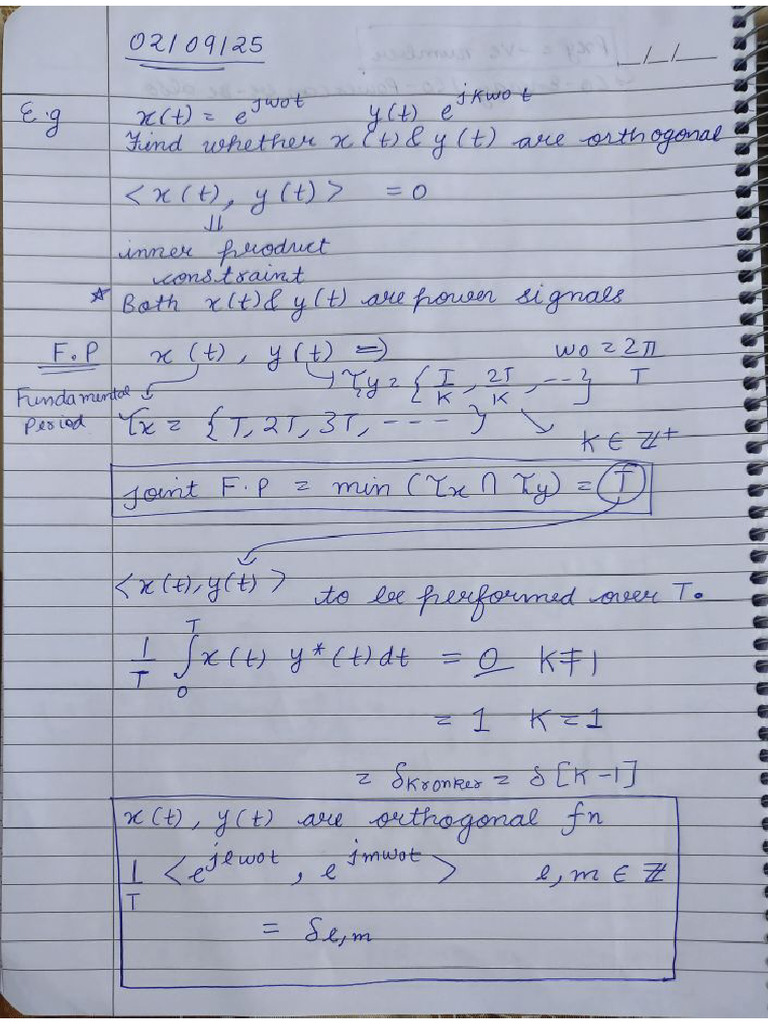 02/09/25
_/_/_
E.g x(t) = e^jwot y(t) e^jkwot
Find whether x(t) & y(t) are orthogonal
<x(t), y(t)> = 0
⇓
inner product
constraint
* Both x(t) & y(t) are power signals
F.P x(t), y(t) => wo = 2π/T
Fundamental Period
τy = {T/K, 2T/K, ---}
τx = {T, 2T, 3T, ----}
K ∈ Z+
joint F.P = min (τx ∩ τy) = T
<x(t), y(t)> to be performed over T.
1/T ∫0^T x(t) y*(t) dt = 0 K≠1
= 1 K=1
= δKronker = δ[K-1]
x(t), y(t) are orthogonal fn
1/T <e^jlwot, e^jmwot> l, m ∈ Z
= δl,m